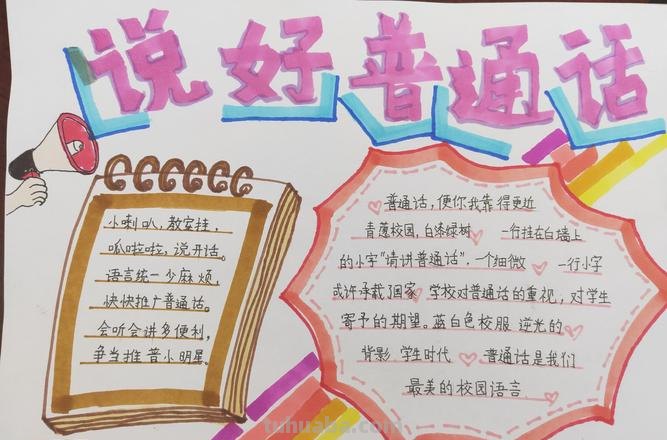 说好普通话
小喇叭，教室挂，
呱啦啦，说开话。
语言统一少麻烦，
快快推广普通话。
会听会讲多便利，
争当推普小明星。
普通话，使你我靠得更近
青葱校园，白漆绿树 一行挂在白墙上
的小字"请讲普通话"，一个细微 一行小字
或许承载了国家 学校对普通话的重视，对学生
寄予的期望。蓝白色校服 逆光的
背影 学生时代 普通话是我们
最美的校园语言
tuhuaba.com